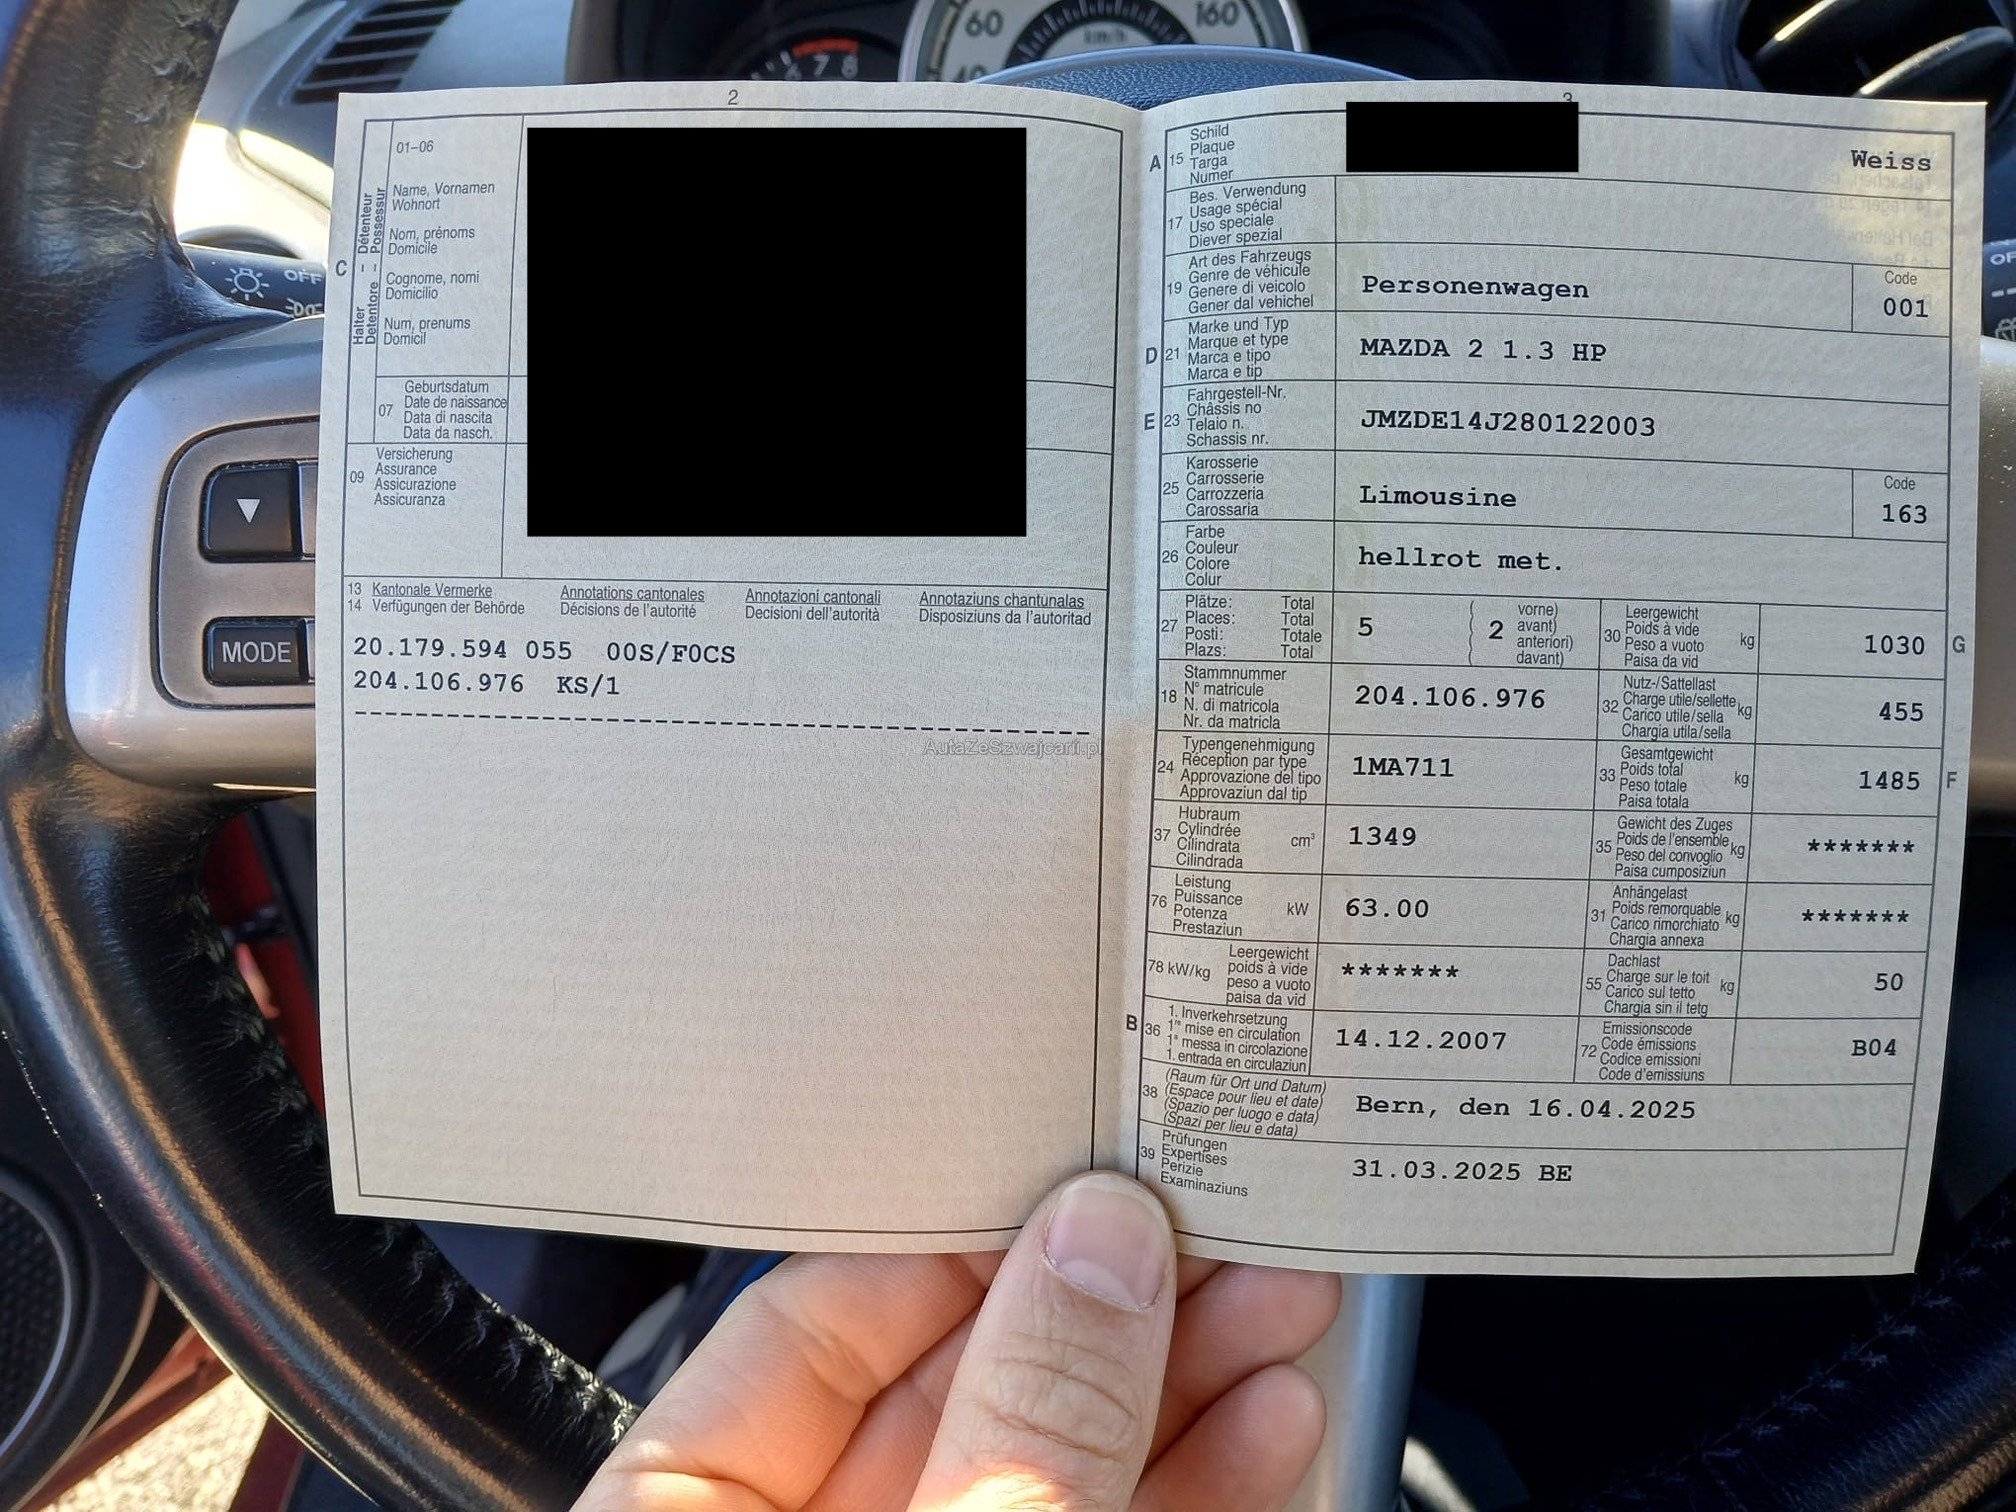 60
160
km/h
7 8
OFF
MODE
2
01–06
Name, Vornamen
Wohnort
Nom, prénoms
Domicile
Cognome, nomi
Domicilio
Num, prenums
Domicil
C
Halter – Détenteur
Detentore – Possessur
07
Geburtsdatum
Date de naissance
Data di nascita
Data da nasch.
09
Versicherung
Assurance
Assicurazione
Assicuranza
13 Kantonale Vermerke Annotations cantonales Annotazioni cantonali Annotaziuns chantunalas
14 Verfügungen der Behörde Décisions de l'autorité Decisioni dell'autorità Disposiziuns da l'autoritad
20.179.594 055 00S/F0CS
204.106.976 KS/1
AutaZeSzwajcarii.pl
3
A 15
Schild
Plaque
Targa
Numer
Weiss
17
Bes. Verwendung
Usage spécial
Uso speciale
Diever spezial
19
Art des Fahrzeugs
Genre de véhicule
Genere di veicolo
Gener dal vehichel
Personenwagen
Code
001
D 21
Marke und Typ
Marque et type
Marca e tipo
Marca e tip
MAZDA 2 1.3 HP
E 23
Fahrgestell-Nr.
Châssis no
Telaio n.
Schassis nr.
JMZDE14J280122003
25
Karosserie
Carrosserie
Carrozzeria
Carossaria
Limousine
Code
163
26
Farbe
Couleur
Colore
Colur
hellrot met.
27
Plätze: Total
Places: Total
Posti: Totale
Plazs: Total
5
( 2
vorne)
avant)
anteriori)
davant)
30
Leergewicht
Poids à vide
Peso a vuoto
Paisa da vid
kg
1030
G
18
Stammnummer
N° matricule
N. di matricola
Nr. da matricla
204.106.976
32
Nutz-/Sattellast
Charge utile/sellette
Carico utile/sella
Chargia utila/sella
kg
455
24
Typengenehmigung
Réception par type
Approvazione del tipo
Approvaziun dal tip
1MA711
33
Gesamtgewicht
Poids total
Peso totale
Paisa totala
kg
1485
F
37
Hubraum
Cylindrée
Cilindrata
Cilindrada
cm³
1349
35
Gewicht des Zuges
Poids de l'ensemble
Peso del convoglio
Paisa cumposiziun
kg
*******
76
Leistung
Puissance
Potenza
Prestaziun
kW
63.00
31
Anhängelast
Poids remorquable
Carico rimorchiato
Chargia annexa
kg
*******
78 kW/kg
Leergewicht
poids à vide
peso a vuoto
paisa da vid
*******
55
Dachlast
Charge sur le toit
Carico sul tetto
Chargia sin il tetg
kg
50
B 36
1. Inverkehrsetzung
1re mise en circulation
1a messa in circolazione
1. entrada en circulaziun
14.12.2007
72
Emissionscode
Code émissions
Codice emissioni
Code d'emissiuns
B04
38
(Raum für Ort und Datum)
(Espace pour lieu et date)
(Spazio per luogo e data)
(Spazi per lieu e data)
Bern, den 16.04.2025
39
Prüfungen
Expertises
Perizie
Examinaziuns
31.03.2025 BE